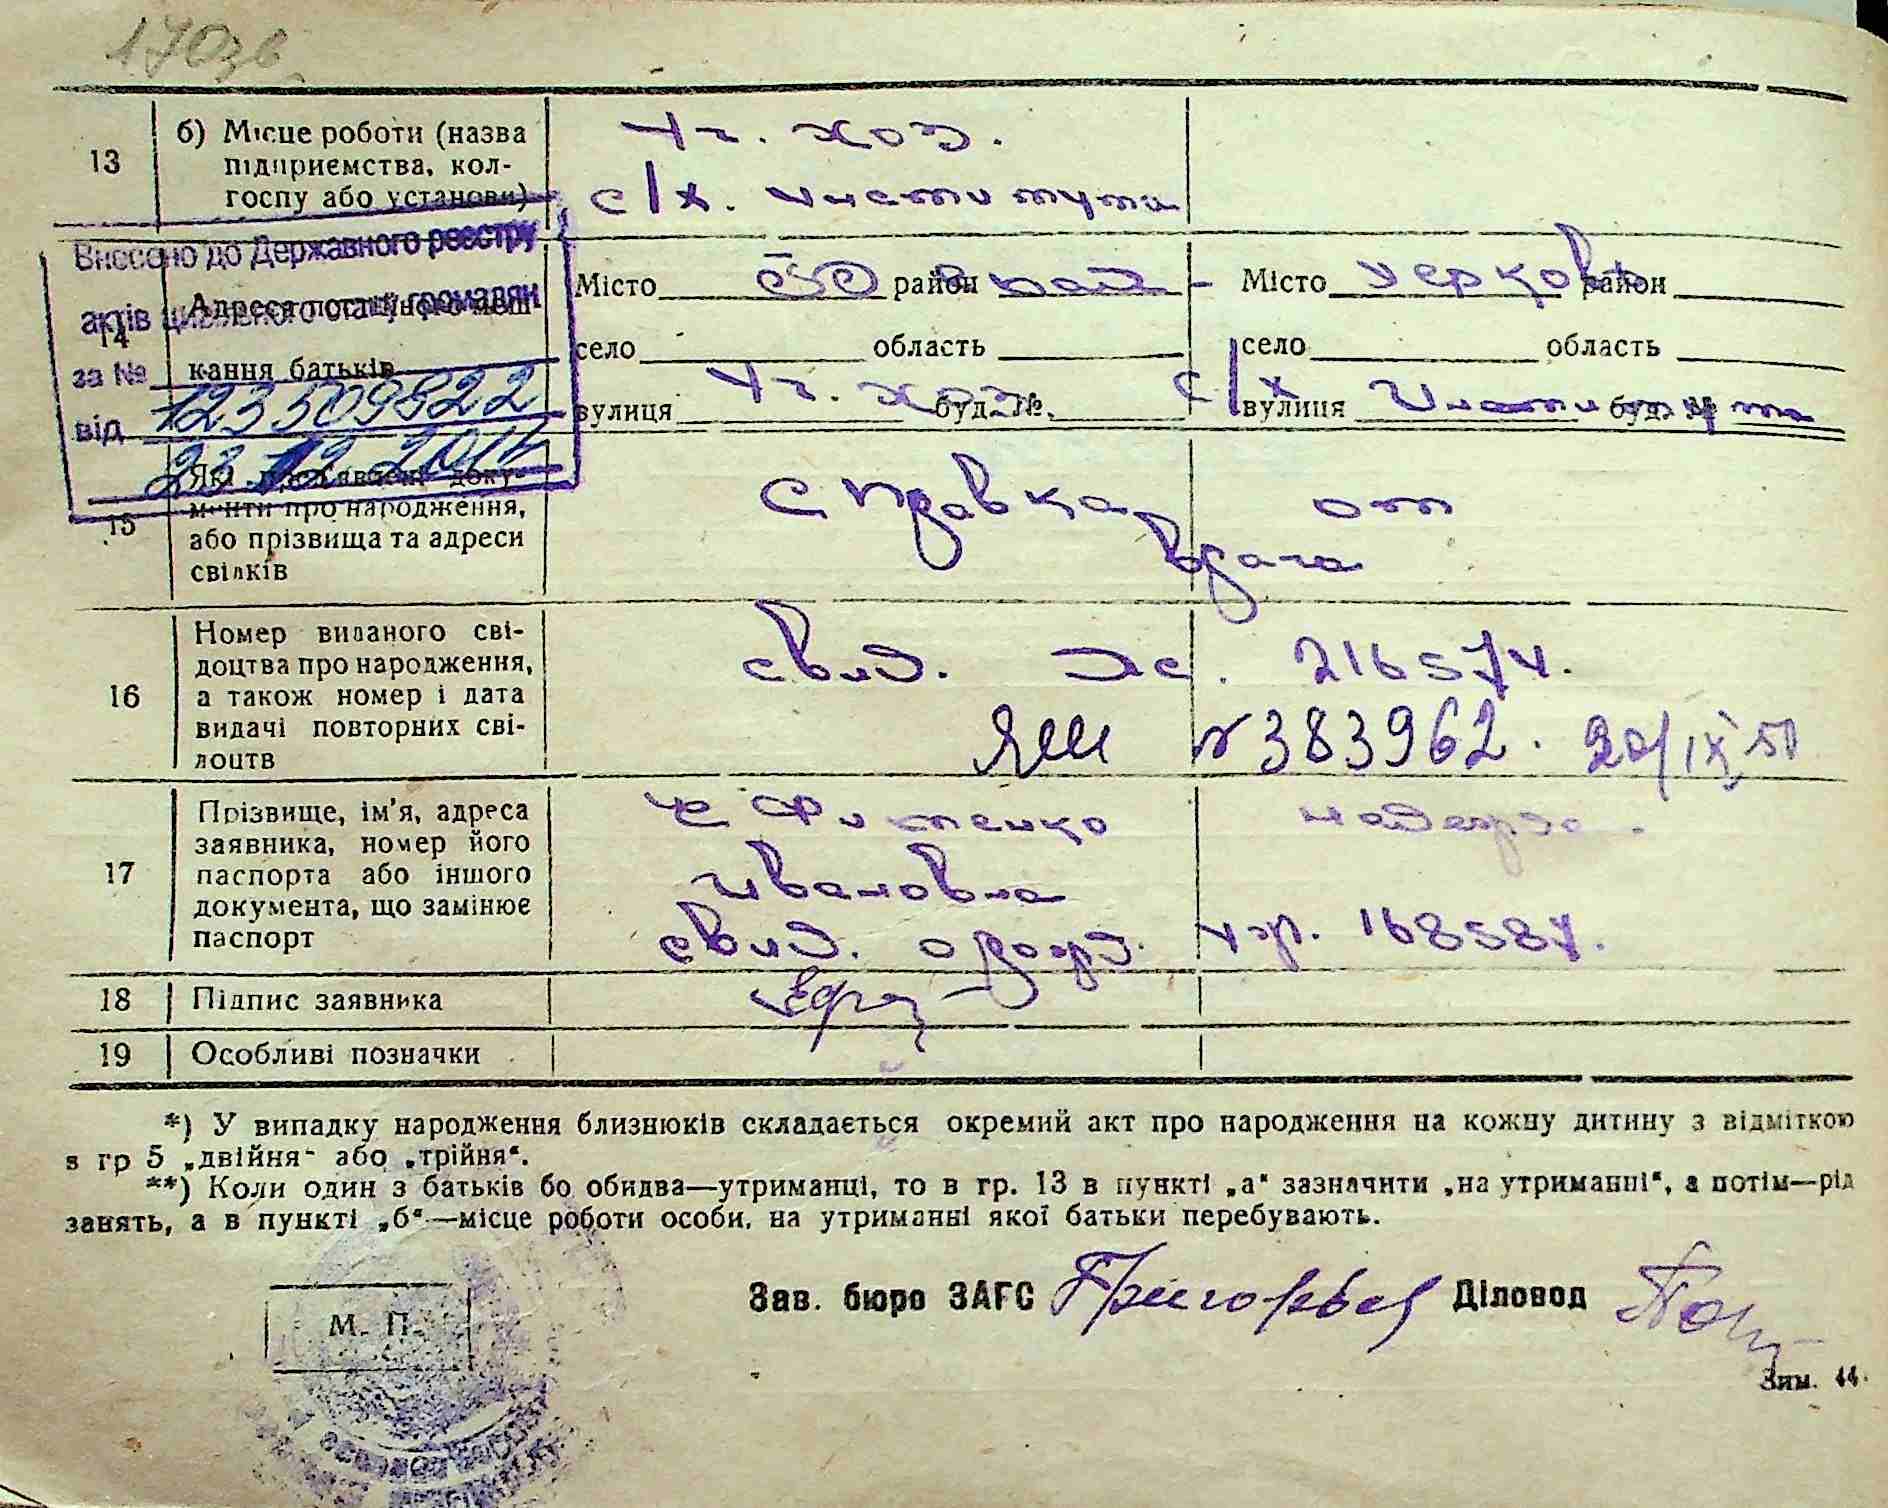 170зв.
13
б) Місце роботи (назва
підприємства, кол-
госпу або установи)
Уч. хоз.
с/х. института
Внесено до Державного реєстру
актів цивільного стану громадян
за №
123509822
від
14
Адреса постійного меш-
кання батьків
Місто район
село область
вулиця Уч. хоз. буд. №.
Місто район
село область
с/х вулиця Института буд. №
15
Які пред'явлені доку-
менти про народження,
або прізвища та адреси
свідків
справка от
врача
16
Номер виданого сві-
доцтва про народження,
а також номер і дата
видачі повторних сві-
доцтв
свид. 216574.
ЯШ №383962. 20/IX 50
17
Прізвище, ім'я, адреса
заявника, номер його
паспорта або іншого
документа, що замінює
паспорт
Надежда.
Ивановна
свид. о рожд. 168587.
18 Підпис заявника
19 Особливі позначки
*) У випадку народження близнюків складається окремий акт про народження на кожну дитину з відміткою
в гр 5 „двійня“ або „трійня“.
**) Коли один з батьків бо обидва—утриманці, то в гр. 13 в пункті „а“ зазначити „на утриманні“, а потім—рід
занять, а в пункті „б“—місце роботи особи, на утриманні якої батьки перебувають.
Зав. бюро ЗАГС Григорьев Діловод
М. П.
Зим. 44.